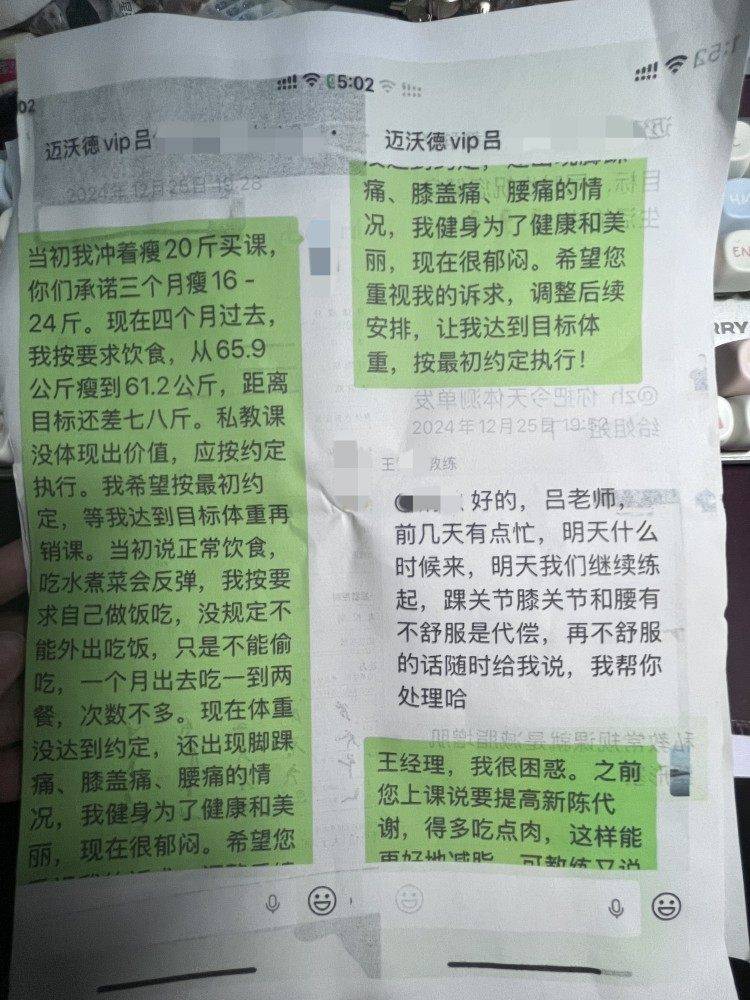 02
迈沃德vip吕
2024年12月25日 19:28
当初我冲着瘦20斤买课，
你们承诺三个月瘦16-
24斤。现在四个月过去，
我按要求饮食，从65.9
公斤瘦到61.2公斤，距离
目标还差七八斤。私教课
没体现出价值，应按约定
执行。我希望按最初约
定，等我达到目标体重再
销课。当初说正常饮食，
吃水煮菜会反弹，我按要
求自己做饭吃，没规定不
能外出吃饭，只是不能偷
吃，一个月出去吃一到两
餐，次数不多。现在体重
没达到约定，还出现脚踝
痛、膝盖痛、腰痛的情
况，我健身为了健康和美
丽，现在很郁闷。希望您
5:02
迈沃德vip吕
没达到约定，还出现脚踝
痛、膝盖痛、腰痛的情
况，我健身为了健康和美
丽，现在很郁闷。希望您
重视我的诉求，调整后续
安排，让我达到目标体
重，按最初约定执行！
2024年12月25日 19:52
王 教练
好的，吕老师，
前几天有点忙，明天什么
时候来，明天我们继续练
起，踝关节膝关节和腰有
不舒服是代偿，再不舒服
的话随时给我说，我帮你
处理哈
王经理，我很困惑。之前
您上课说要提高新陈代
谢，得多吃点肉，这样能
更好地减脂，可教练又说